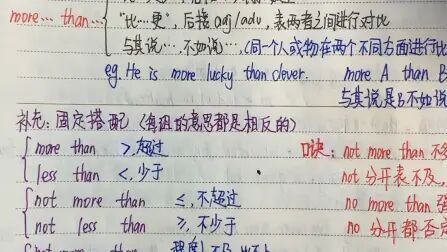 more… than…
"比…更", 后接adj/adv, 表两者之间进行对比
与其说…, 不如说…, (同一个人或物在两个不同方面进行比
eg. He is more lucky than clever. more A than B
与其说是B不如说
补充: 固定搭配 (每组的意思都是相反的)
more than >, 超过 口诀: not more than 不
less than <, 少于 not 分开表不及,
not more than ≤, 不超过 no more than 强
not less than ≥, 不少于 no 分开都否
than 程度